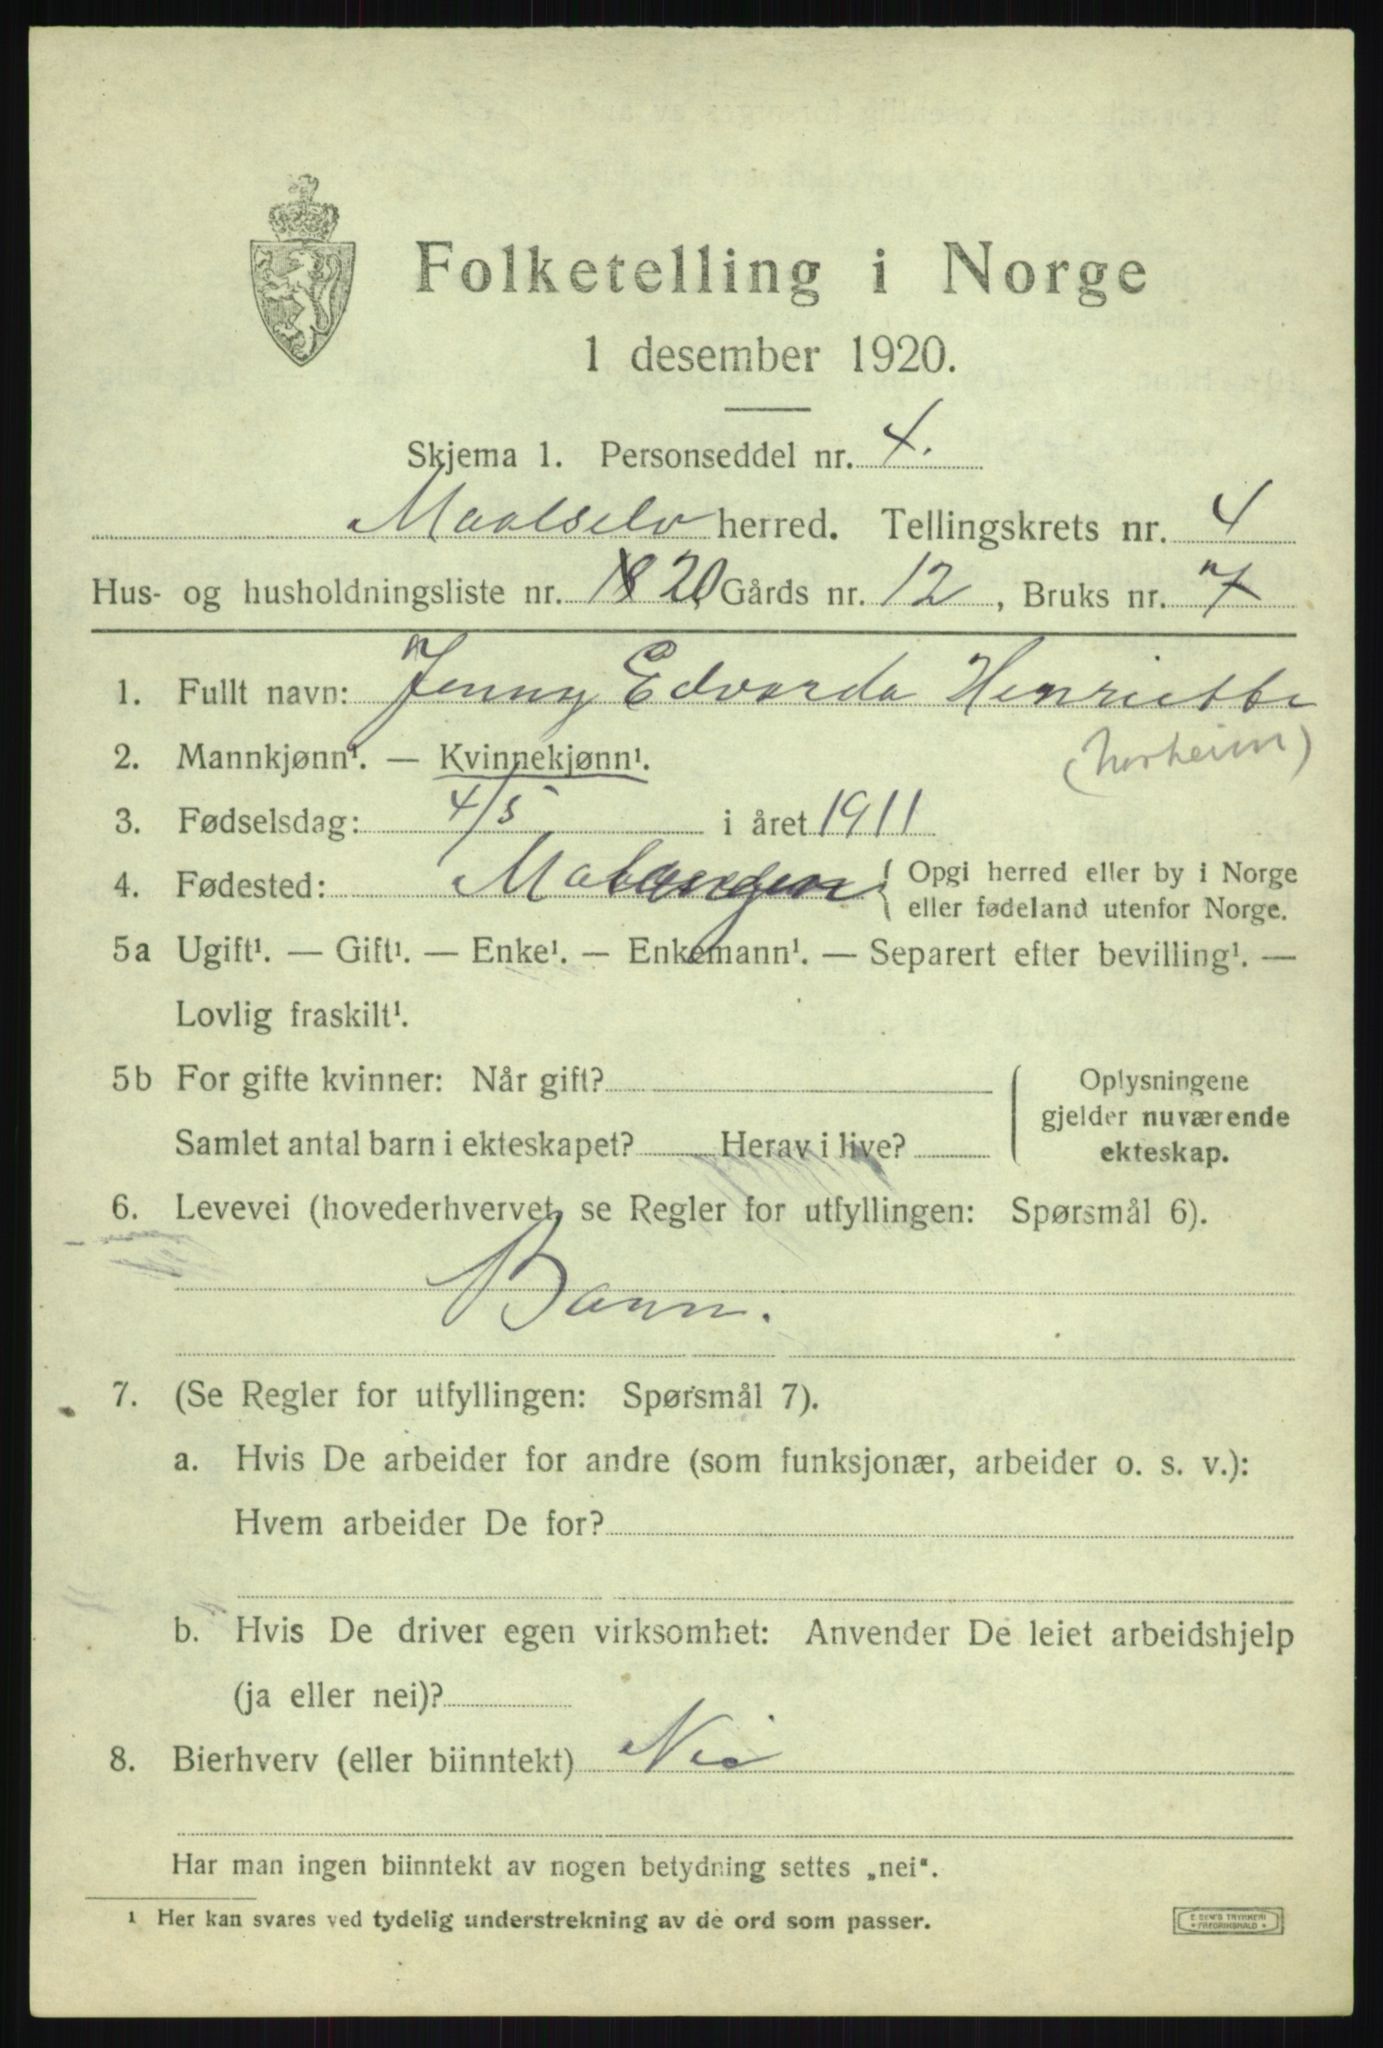 Folketelling i Norge
1 desember 1920.
Skjema 1. Personseddel nr. 4.
Maalselv herred. Tellingskrets nr. 4
Hus- og husholdningsliste nr. 18 20, Gårds nr. 12, Bruks nr. 7
1. Fullt navn: Jenny Edvarda Henriette
(Norheim)
2. Mannkjønn¹. — Kvinnekjønn¹.
3. Fødselsdag: 4/5 i året 1911
4. Fødested: Malangen { Opgi herred eller by i Norge
eller fødeland utenfor Norge.
5a Ugift¹. — Gift¹. — Enke¹. — Enkemann¹. — Separert efter bevilling¹. —
Lovlig fraskilt¹.
5b For gifte kvinner: Når gift?
Samlet antal barn i ekteskapet? Herav i live?
Oplysningene
gjelder nuværende
ekteskap.
6. Levevei (hovederhvervet, se Regler for utfyllingen: Spørsmål 6).
Barn.
7. (Se Regler for utfyllingen: Spørsmål 7).
a. Hvis De arbeider for andre (som funksjonær, arbeider o. s. v.):
Hvem arbeider De for?
b. Hvis De driver egen virksomhet: Anvender De leiet arbeidshjelp
(ja eller nei)?
8. Bierhverv (eller biinntekt) Nei
Har man ingen biinntekt av nogen betydning settes „nei“.
¹ Her kan svares ved tydelig understrekning av de ord som passer.
E. SEM'S TRYKKERI
• FREDRIKSHALD •